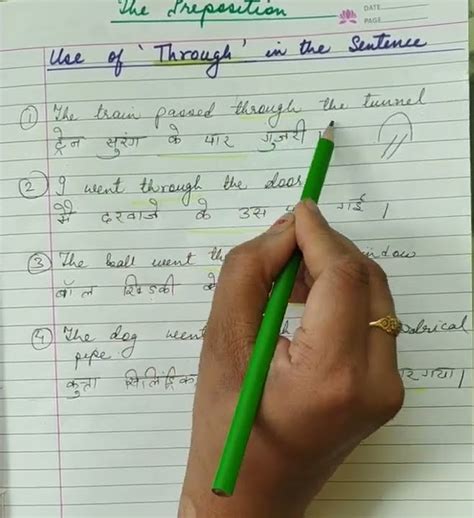 The Preposition
DATE
PAGE
Use of 'Through' in the Sentence
① The train passed through the tunnel
ट्रेन सुरंग के पार गुजरी
② I went through the door
मै दरवाजे के उस गई ।
③ The ball went
बॉल खिड़की
④ The dog went
pipe
कुत्ता गया।